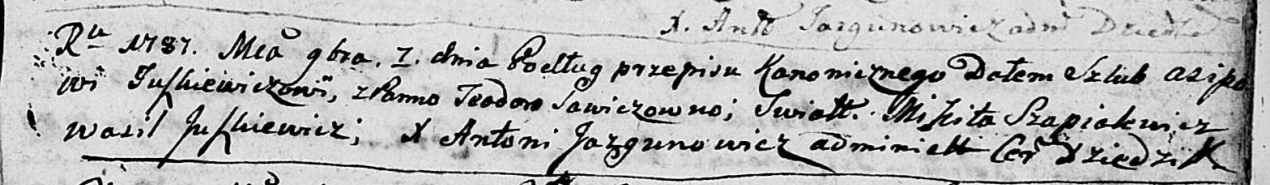 X. Anto Jazgunowicz adm Dziedz
Rku 1787. Mca 9bra. 7. dnia Podług przepisu Kanonicznego Dałem Szlub asipo
wi Juszkiewiczowi, z Panno Teodoro Sawiczowno; Swiatt. Mikita Szapialewicz
wasil Juszkiewicz; X Antoni Jazgunowicz administ Cer Dziedzi